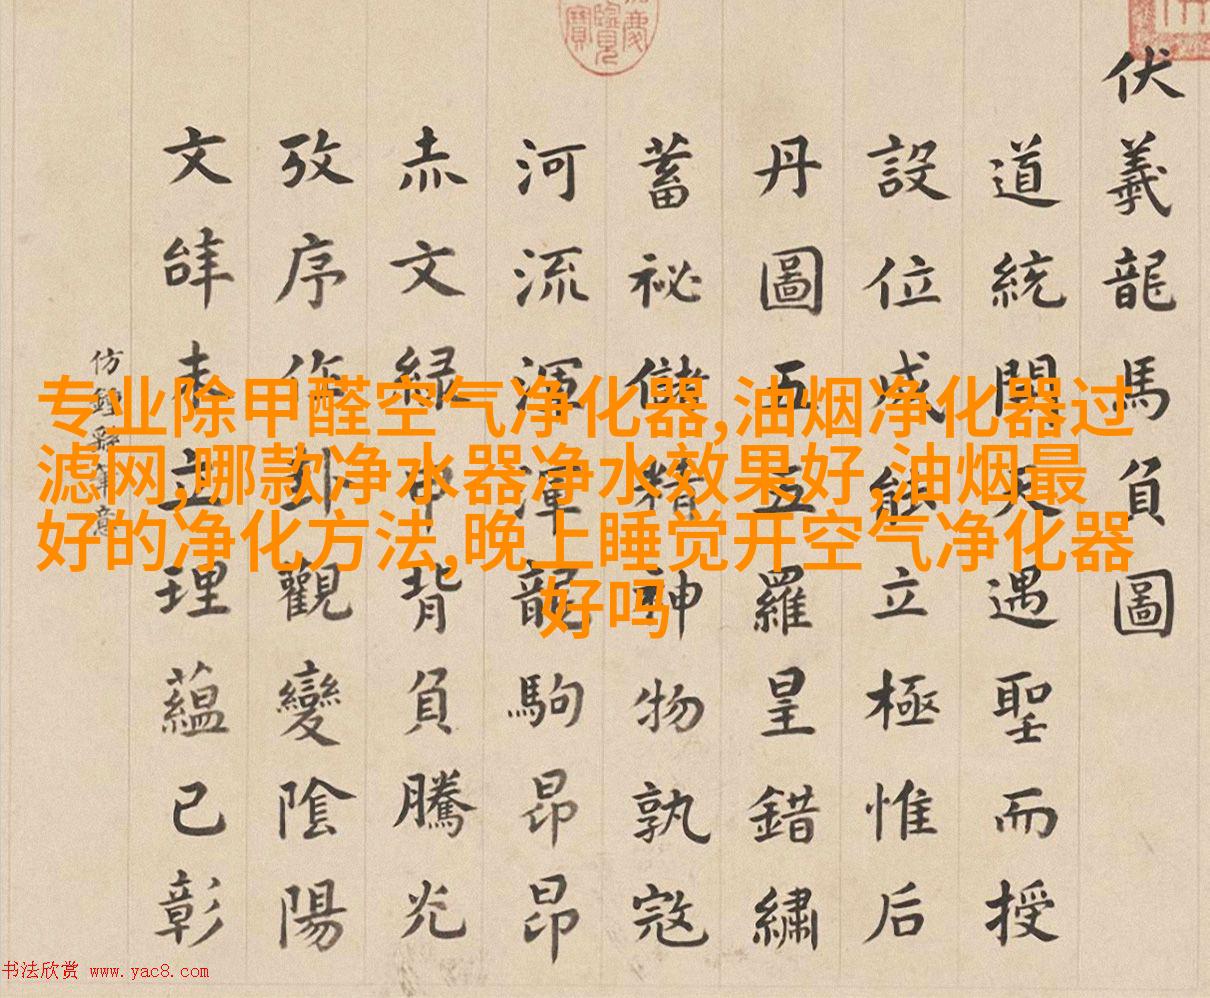 伏羲龍馬負圖
道統開天遇聖而授
設位成能立極惟后
丹圖五五羅皇錯繡
蓄祕儲精神物孰寇
河流渾渾龍駒昂昂
赤文緑甲背負騰光
攷序作卦觀變陰陽
文
表立理蘊已彰
仿鍾繇
意
专业除甲醛空气净化器,油烟净化器过
滤网,哪款净水器净水效果好,油烟最
好的净化方法,晚上睡觉开空气净化器
好吗
书法欣赏 www.yac8.com